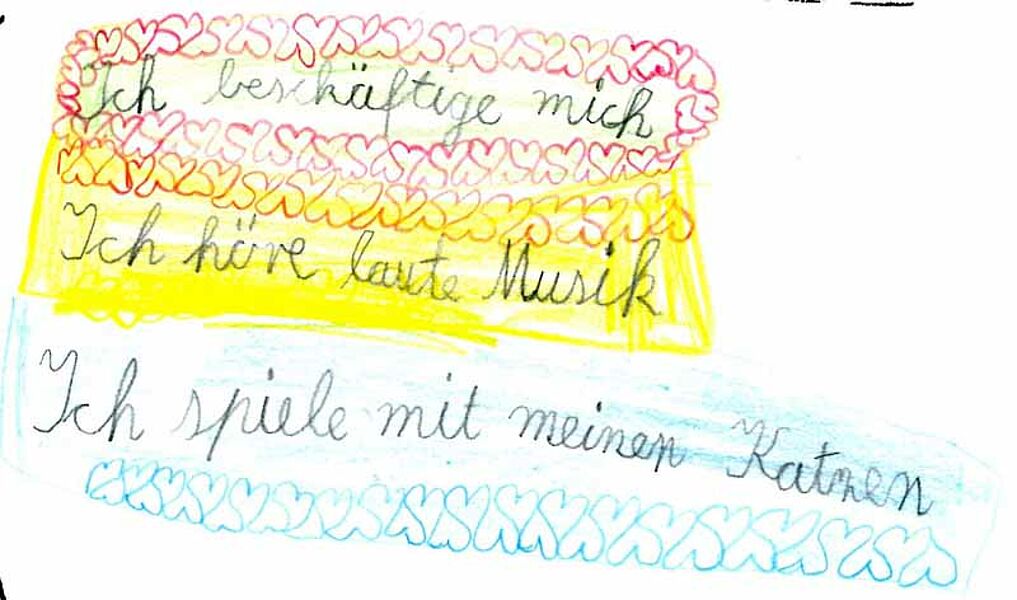 Ich beschäftige mich
Ich höre laute Musik
Ich spiele mit meinen Katzen